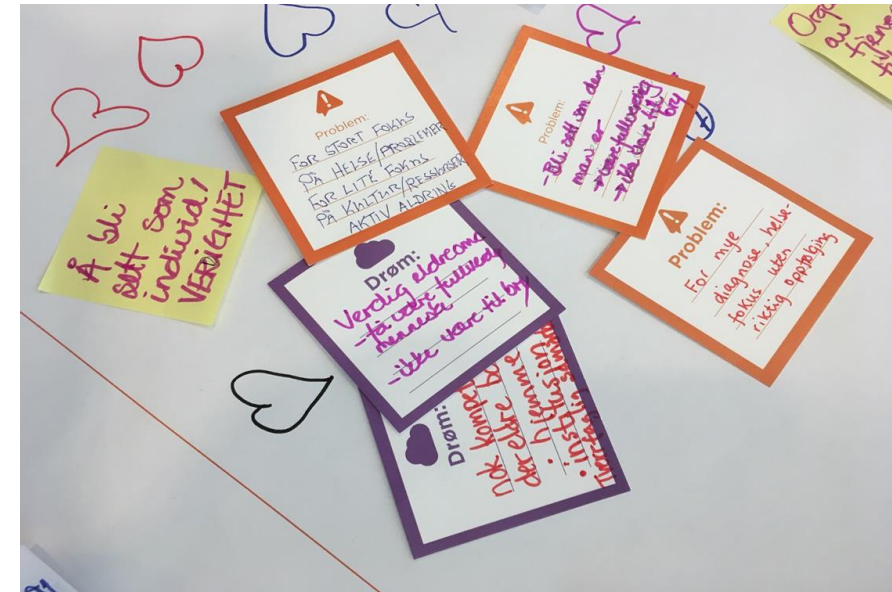 Å bli
sett som
individ/
VERDIGHET
Problem:
FOR STORT FOKUS
PÅ HELSE/PROBLEMER
FOR LITE FOKUS
PÅ KULTUR/RESSURSER
AKTIV ALDRING
Problem:
- Bli sett som den
man er
→ være fullverdig
→ ikke være til bry
Problem:
For mye
diagnose, helse-
fokus uten
riktig oppfølging
Drøm:
Verdig eldreoms
- få være fullverdig
menneske
- ikke være til bry
Drøm:
nok kompe
der eldre be
• hjemme
• institusjon
Tverrfaglig
av
tjene